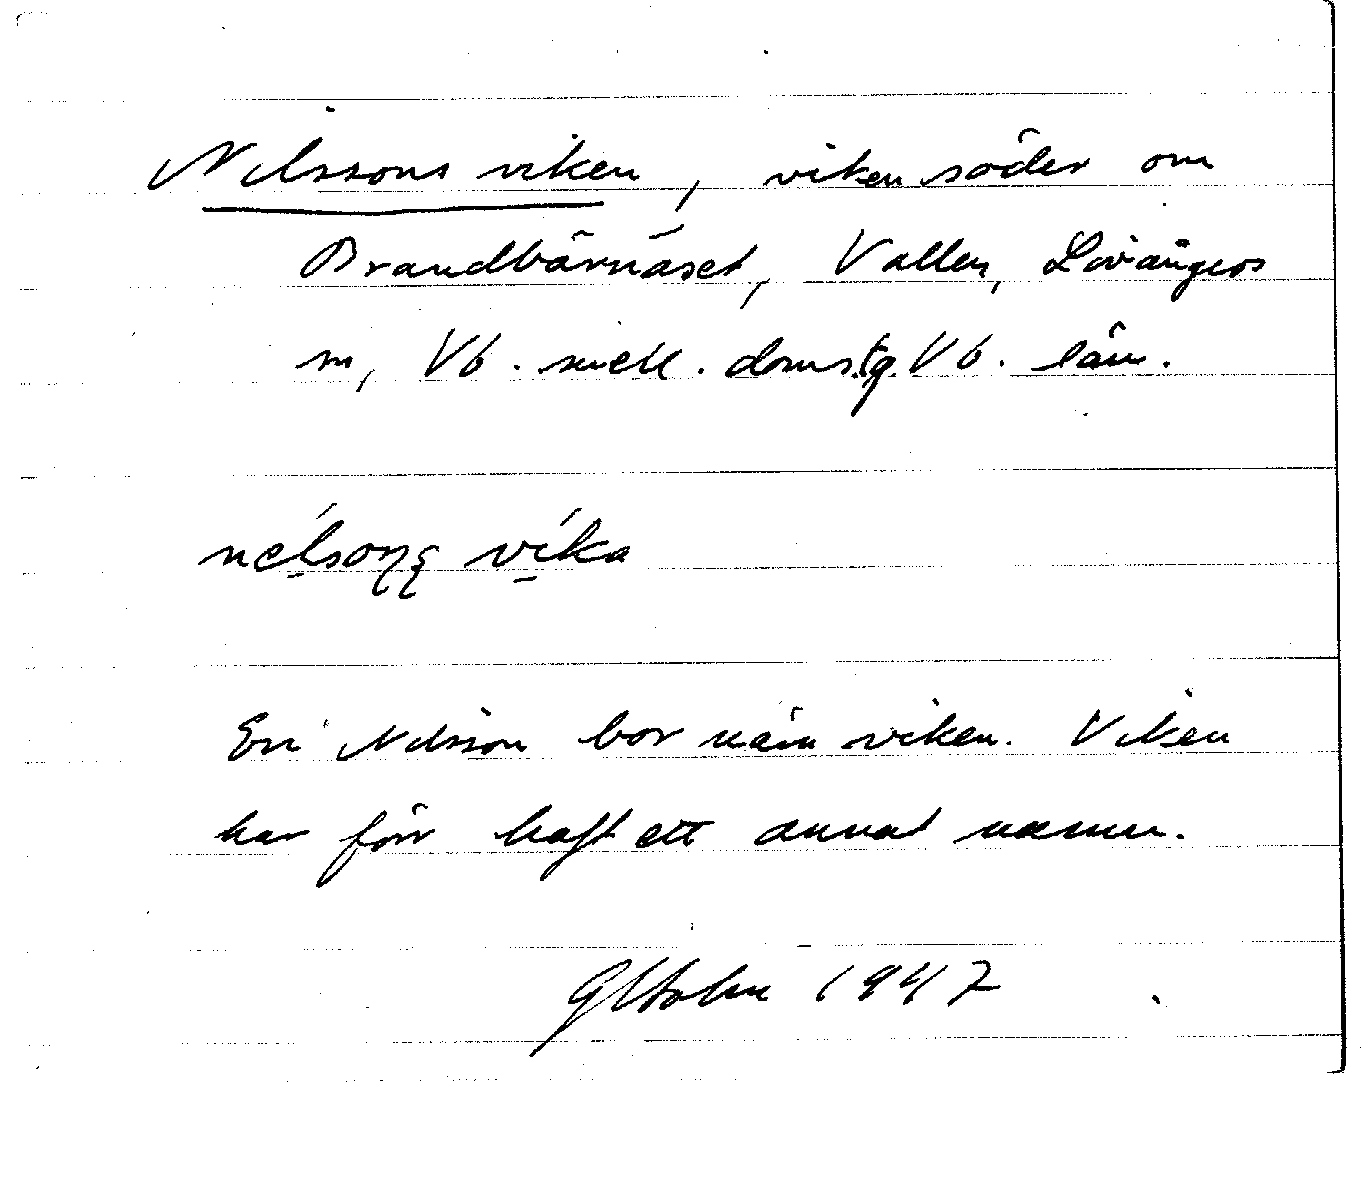 Nilssons viken, viken söder om
Brandbärnäset, Vallen, Lövångers
sn, Vb. mell. doms.tg. Vb. län.
nélsoņş víka
Eri Nilsson bor näm viken. Viken
har förr haft ett annat namn.
1947